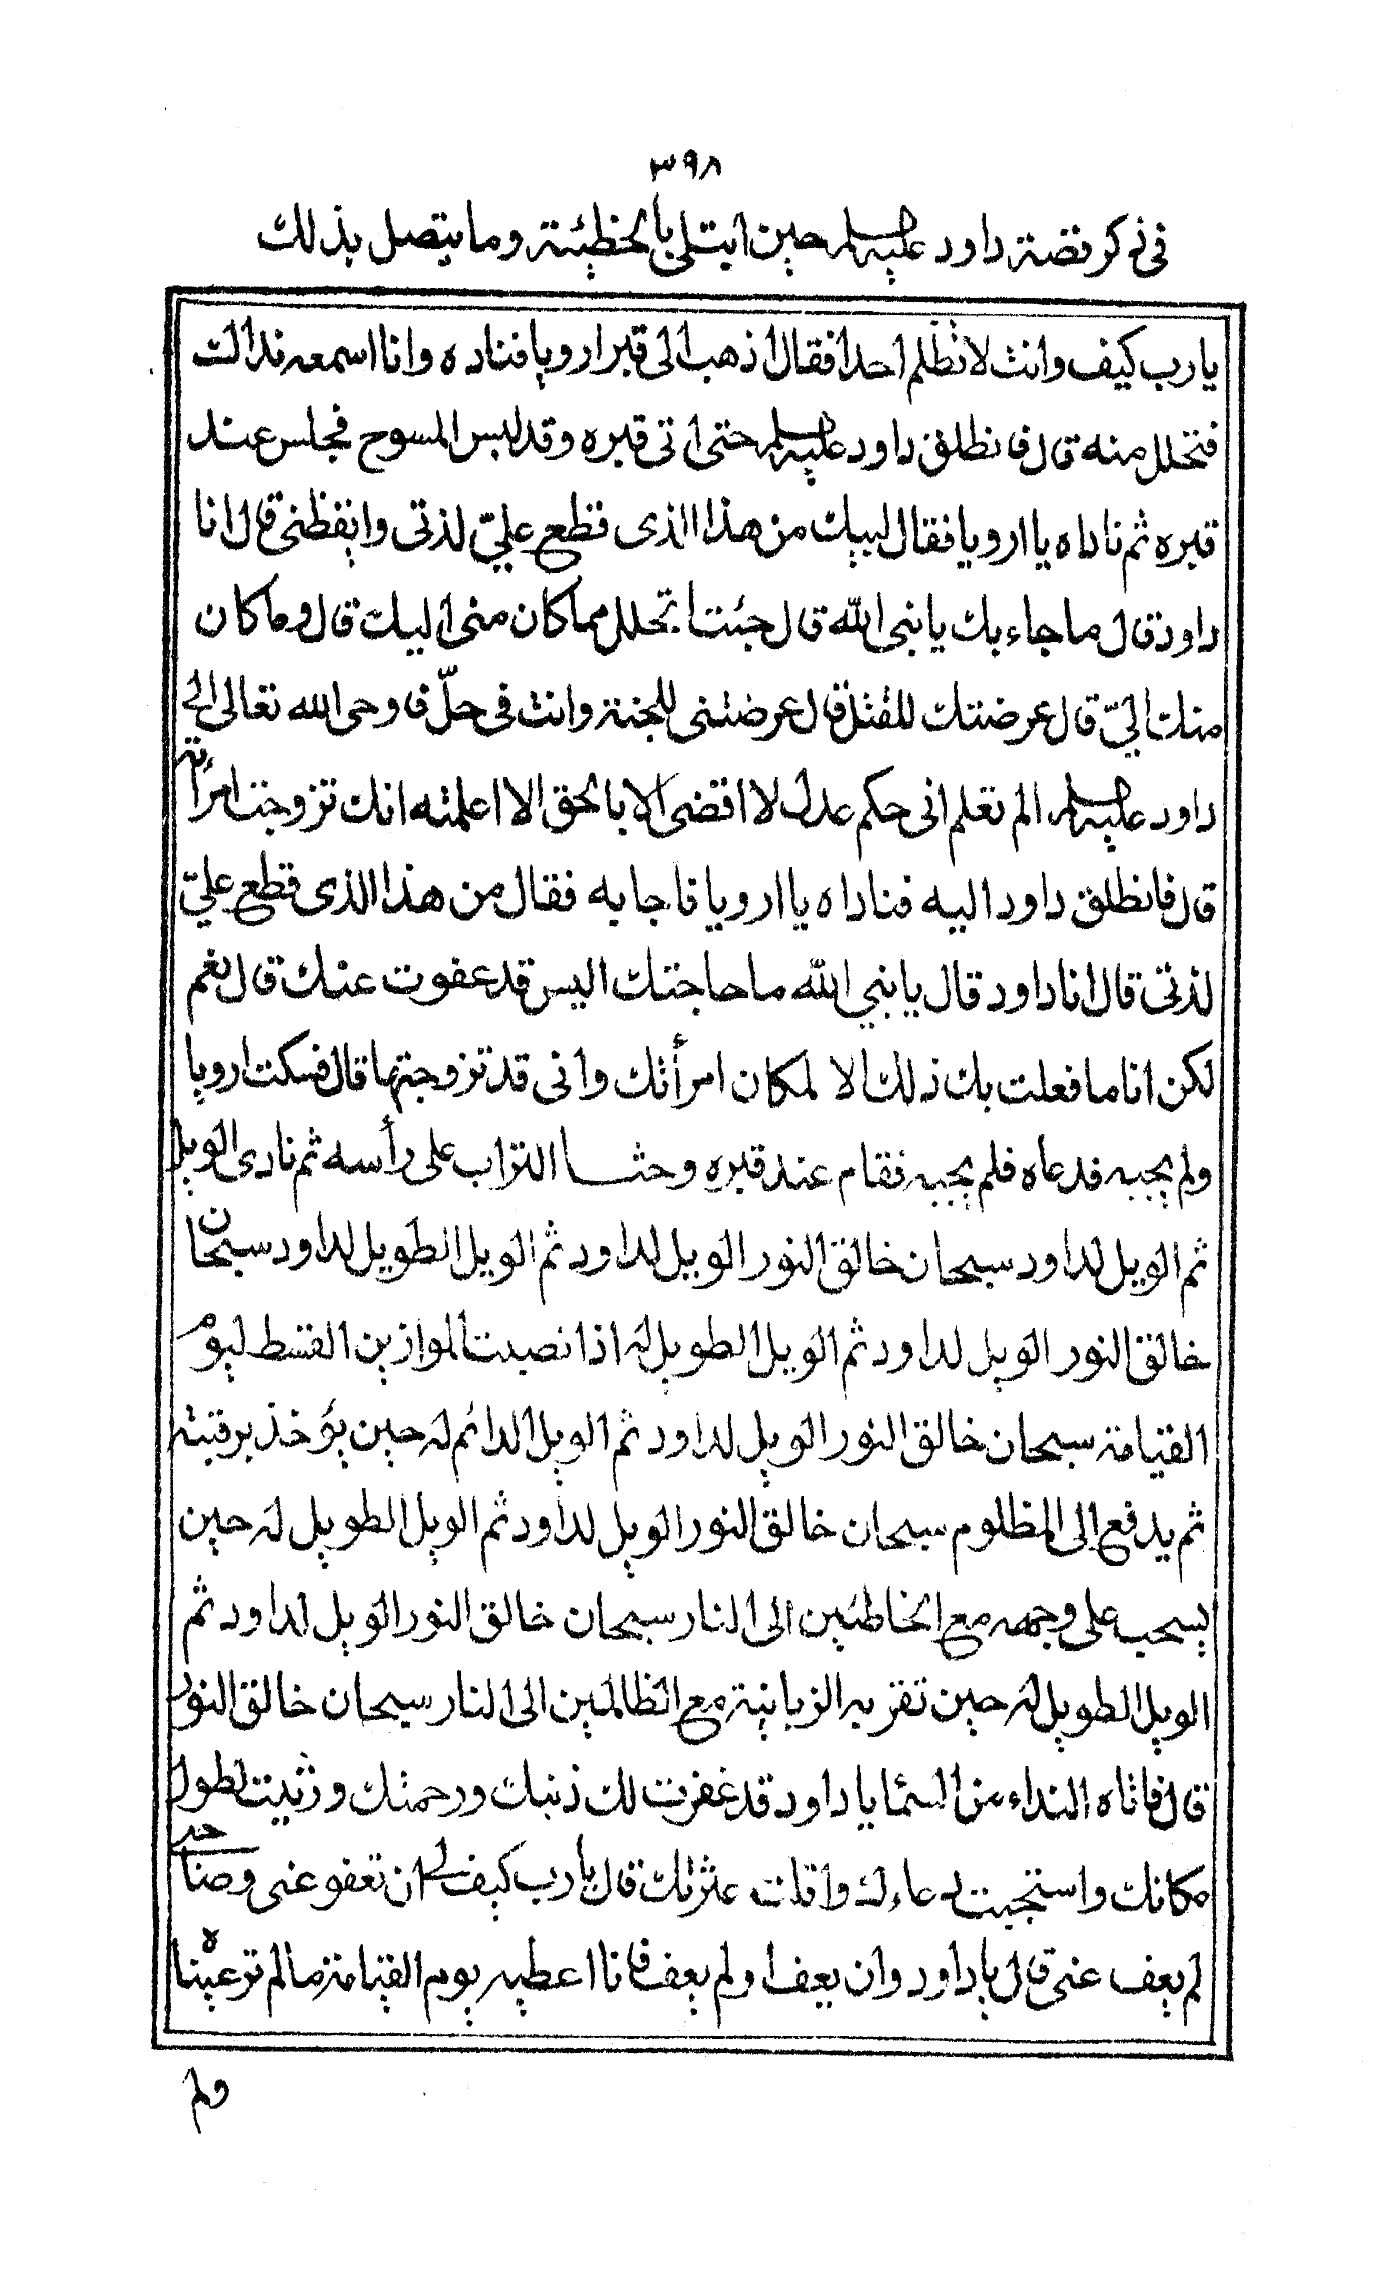 ٣٩٨
فى ذكر قصة داود عليه السلم حين ابتلى بالخطيئة وما يتصل بذلك
يا رب كيف وانت لا تظلم احدا فقال اذهب الى قبر اوريا فناده وانا اسمعه نداك
فتحلل منه قال فانطلق داود عليه السلم حتى اتى قبره وقد لبس المسوح فجلس عند
قبره ثم ناداه يا اروبا فقال لبيك من هذا الذى قطع عليّ لذتى وايقظنى قال انا
داود قال ما جاء بك يا نبى الله قال جئت اتحلل مما كان منى اليك قال وما كان
منك اليّ قال عرضتك للقتل قال عرضتنى للجنة وانت فى حلّ فاوحى الله تعالى الى
داود عليه السلم الم تعلم انى حكم عدل لا اقضى الا بالحق الا اعلمته انك تزوجت امرأته
قال فانطلق داود اليه فناداه يا اروبا فاجابه فقال من هذا الذى قطع عليّ
لذتى قال انا داود قال يا نبي الله ما حاجتك اليس قد عفوت عنك قال نعم
لكن انا ما فعلت بك ذلك الا لمكان امرأتك وانى قد تزوجتها قال فسكت اروبا
ولم يجبه فدعاه فلم يجبه فقام عند قبره وحثا التراب على رأسه ثم نادى الويل
ثم الويل لداود سبحان خالق النور الويل لداود ثم الويل الطويل لداود سبحان
خالق النور الويل لداود ثم الويل الطويل له اذا نصبت الموازين القسط ليوم
القيامة سبحان خالق النور الويل لداود ثم الويل الدائم له حين يؤخذ برقبته
ثم يدفع الى المظلوم سبحان خالق النور الويل لداود ثم الويل الطويل له حين
يسحب على وجهه مع الخاطئين الى النار سبحان خالق النور الويل لداود ثم
الويل الطويل له حين تقربه الزبانية مع الظالمين الى النار سبحان خالق النور
قال فاتاه النداء من السما يا داود قد غفرت لك ذنبك ورحمتك ورثيت لطول
مكانك واستجبت دعاءك واقلت عثرتك قال يا رب كيف لى ان تعفو عنى وصاحبى
لم يعف عنى قال يا داود وان يعف او لم يعف فانا اعطيه يوم القيامة ما لم تر عيناه
ولم